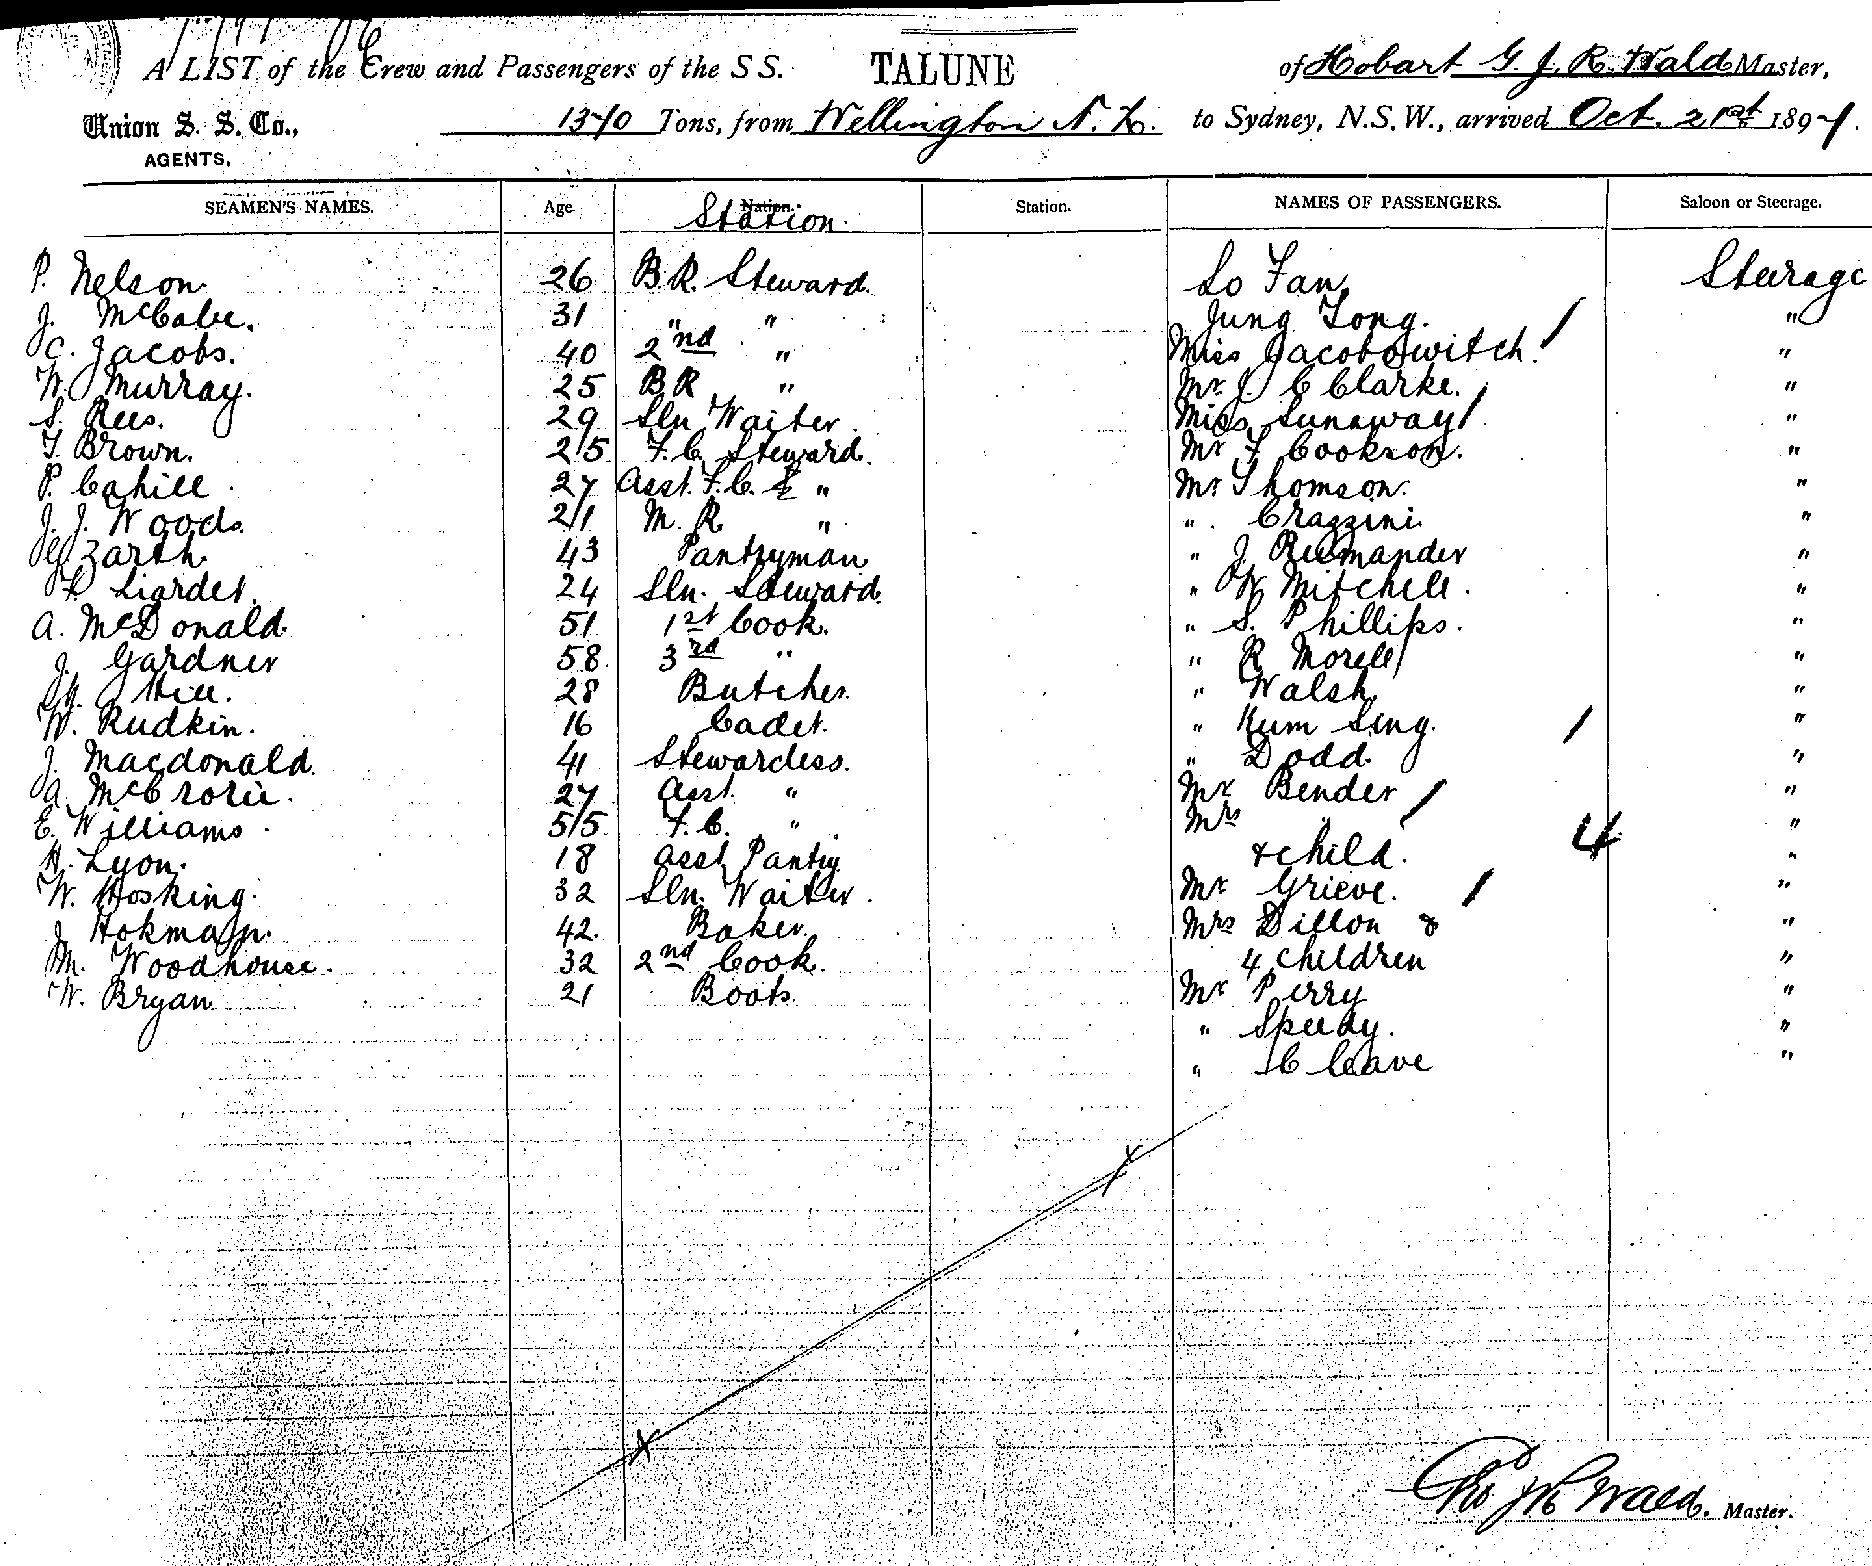 A LIST of the Crew and Passengers of the S S. TALUNE of Hobart G. J. R. Wald Master,
Union S. S. Co., AGENTS. 1370 Tons, from Wellington N. Z. to Sydney, N.S.W., arrived Oct. 21st 1897.
SEAMEN'S NAMES. Age Nation. Station. Station. NAMES OF PASSENGERS. Saloon or Steerage.
P. Nelson 26 B.R. Steward. Lo Fan. Steerage
J. McCabe. 31 " " Jung Tong. "
C. Jacobs. 40 2nd " Miss Jacobowitch. "
W. Murray. 25 B R " Mr J C Clarke. "
S. Rees. 29 Sln Waiter Miss Sunaway "
T. Brown. 25 F. C. Steward. Mr F Cookson. "
P. Cahill. 27 Asst. F. C. " Mr Thomson. "
J. J. Woods. 21 M. R. " " Crazzini "
Zarth 43 Pantryman " J "
Liardet. 24 Sln. Steward. " W Mitchell. "
A. McDonald. 51 1st Cook. " S. Phillips. "
J. Gardner 58. 3rd " " R Morell "
Hill. 28 Butcher. " Walsh "
W. Rudkin. 16 Cadet. " Kum Sing. "
J. Macdonald. 41 Stewardess. " Dodd. "
A. McCrorie. 27 Asst. " Mr Bender "
E. Williams. 55 F. C. " Mrs "
H. Lyon. 18 Asst. Pantry & child. 4 "
W. Hosking. 32 Sln. Waiter. Mr Grieve. "
J Hokman. 42. Baker. Mrs Dillon & "
M. Woodhouse. 32 2nd Cook. 4 children "
W. Bryan 21 Boots. Mr Perry "
" Speedy. "
" Cleave "
Master.